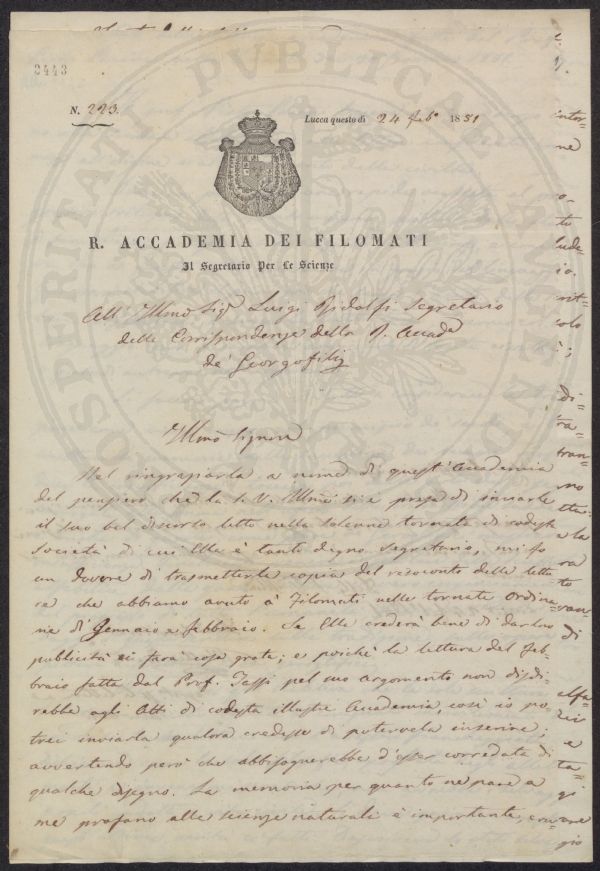 3443
N. 223.
Lucca questo dì 24 Feb° 1851
R. ACCADEMIA DEI FILOMATI
Il Segretario Per Le Scienze
All' Illmo Sigr Luigi Ridolfi Segretario
delle Corrispondenze della R. Accada
de' Georgofili
Illmo Signore
Nel ringraziarla a nome di quest'Accademia
del pensiero che la S. V. Illma si è presa di inviarle
il suo bel discorso letto nella solenne tornata di codesta
Società di cui Ella è tanto degno Segretario, mi fo
un dovere di trasmetterle copia del resoconto delle lettu
re che abbiamo avuto a' Filomati nelle tornate ordina
rie di Gennaio e febbraio. Se Ella crederà bene di darlene
pubblicità ci farà cosa grata; e poichè la lettura del feb
braio fatta dal Prof. Tassi pel suo argomento non disdi
rebbe agli Atti di codesta illustre Accademia, così io po
trei inviarla qualora credesse di potervela inserire;
avvertendo però che abbisognerebbe d'esser corredata di
qualche disegno. La memoria per quanto ne pare a
me profano alle scienze naturali è importante,